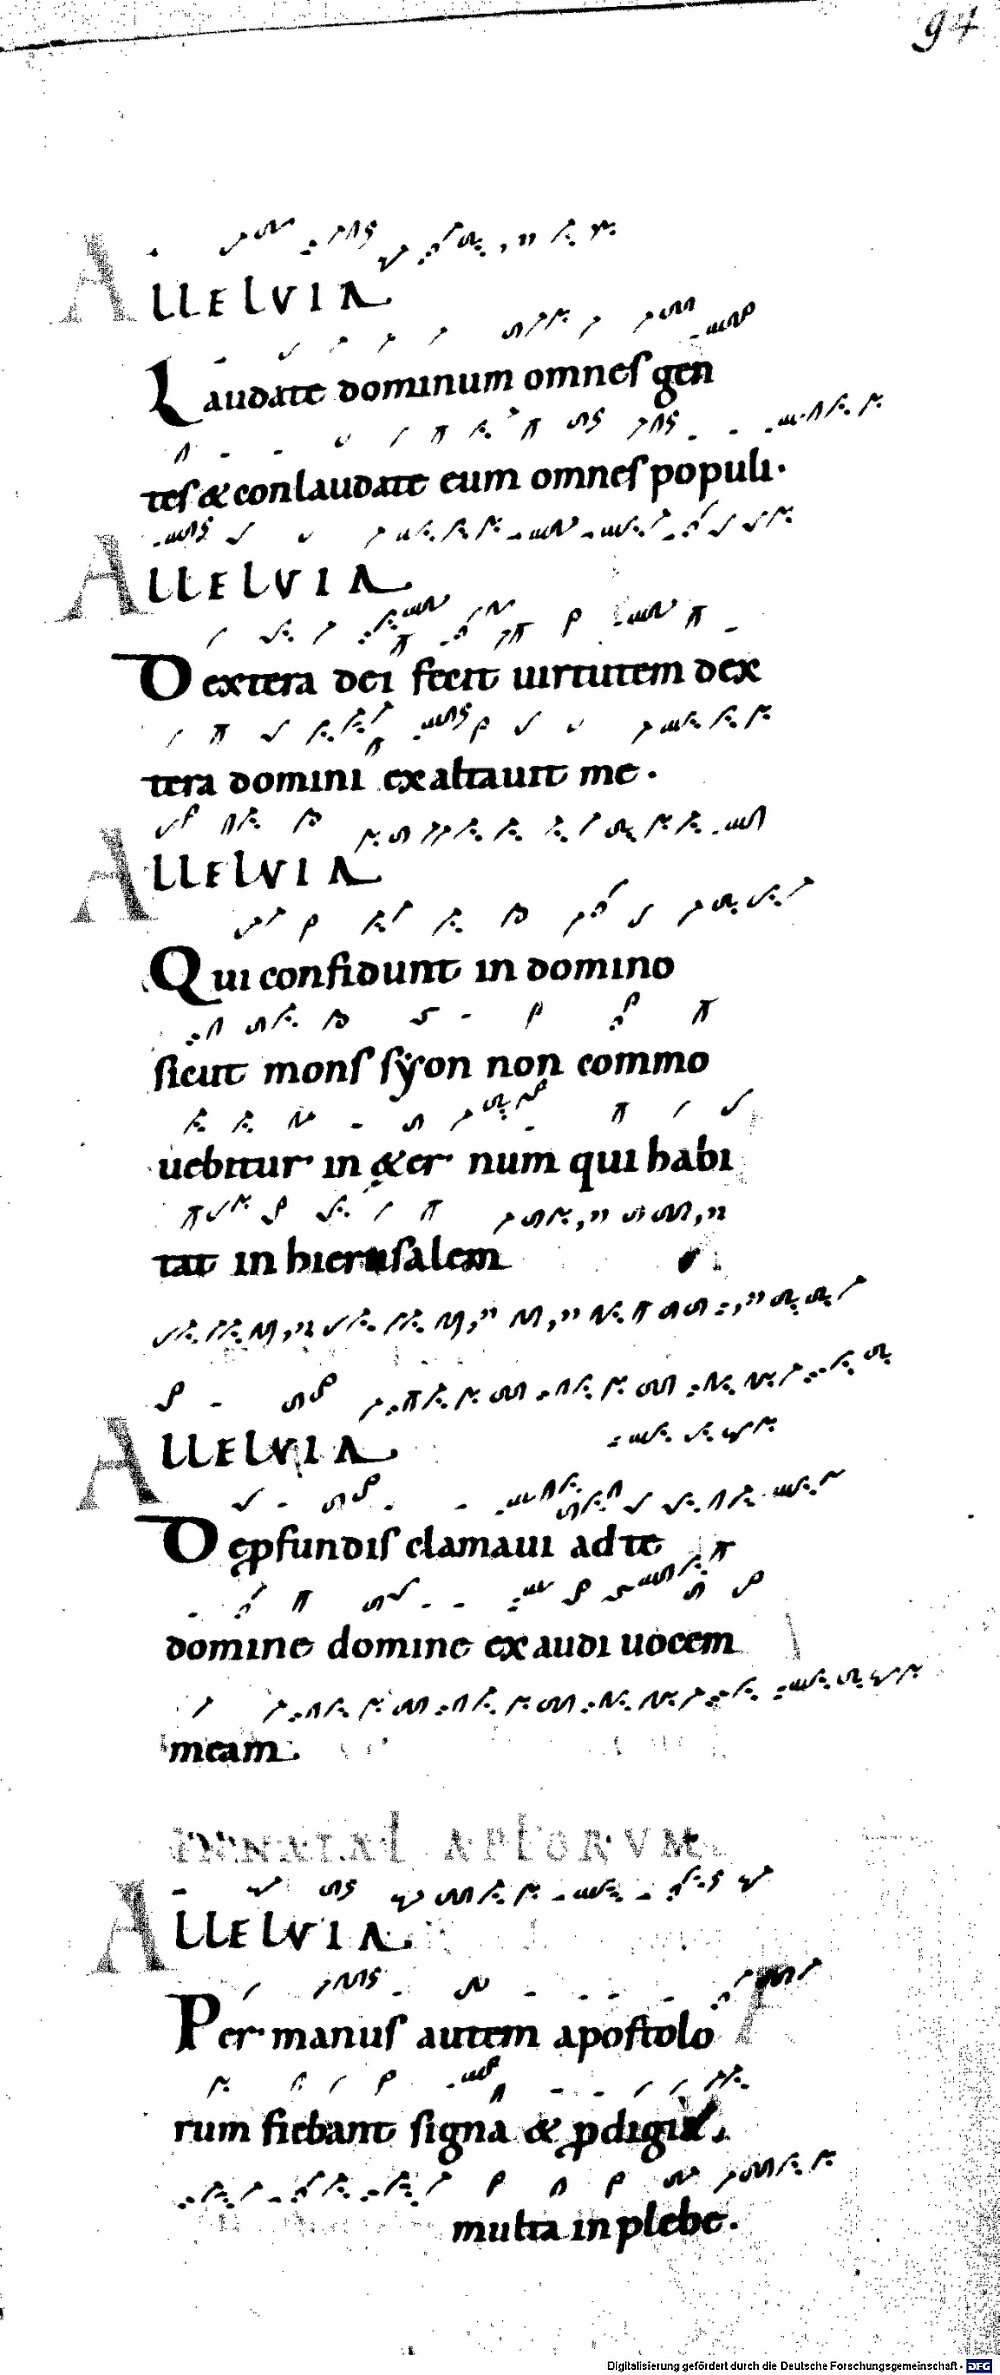 94
ALLELVIA
Laudate dominum omnes gen
tes & conlaudate eum omnes populi.
ALLELVIA
Dextera dei fecit uirtutem dex
tera domini exaltauit me.
ALLELVIA
Qui confidunt in domino
sicut mons syon non commo
uebitur in &er num qui habi
tat in hierusalem
ALLELVIA
De ꝓfundis clamaui ad te
domine domine exaudi uocem
meam.
IN NATAL APLORVM
ALLELVIA
Per manus autem apostolo
rum fiebant signa & ꝓdigia
multa in plebe.
Digitalisierung gefördert durch die Deutsche Forschungsgemeinschaft - DFG